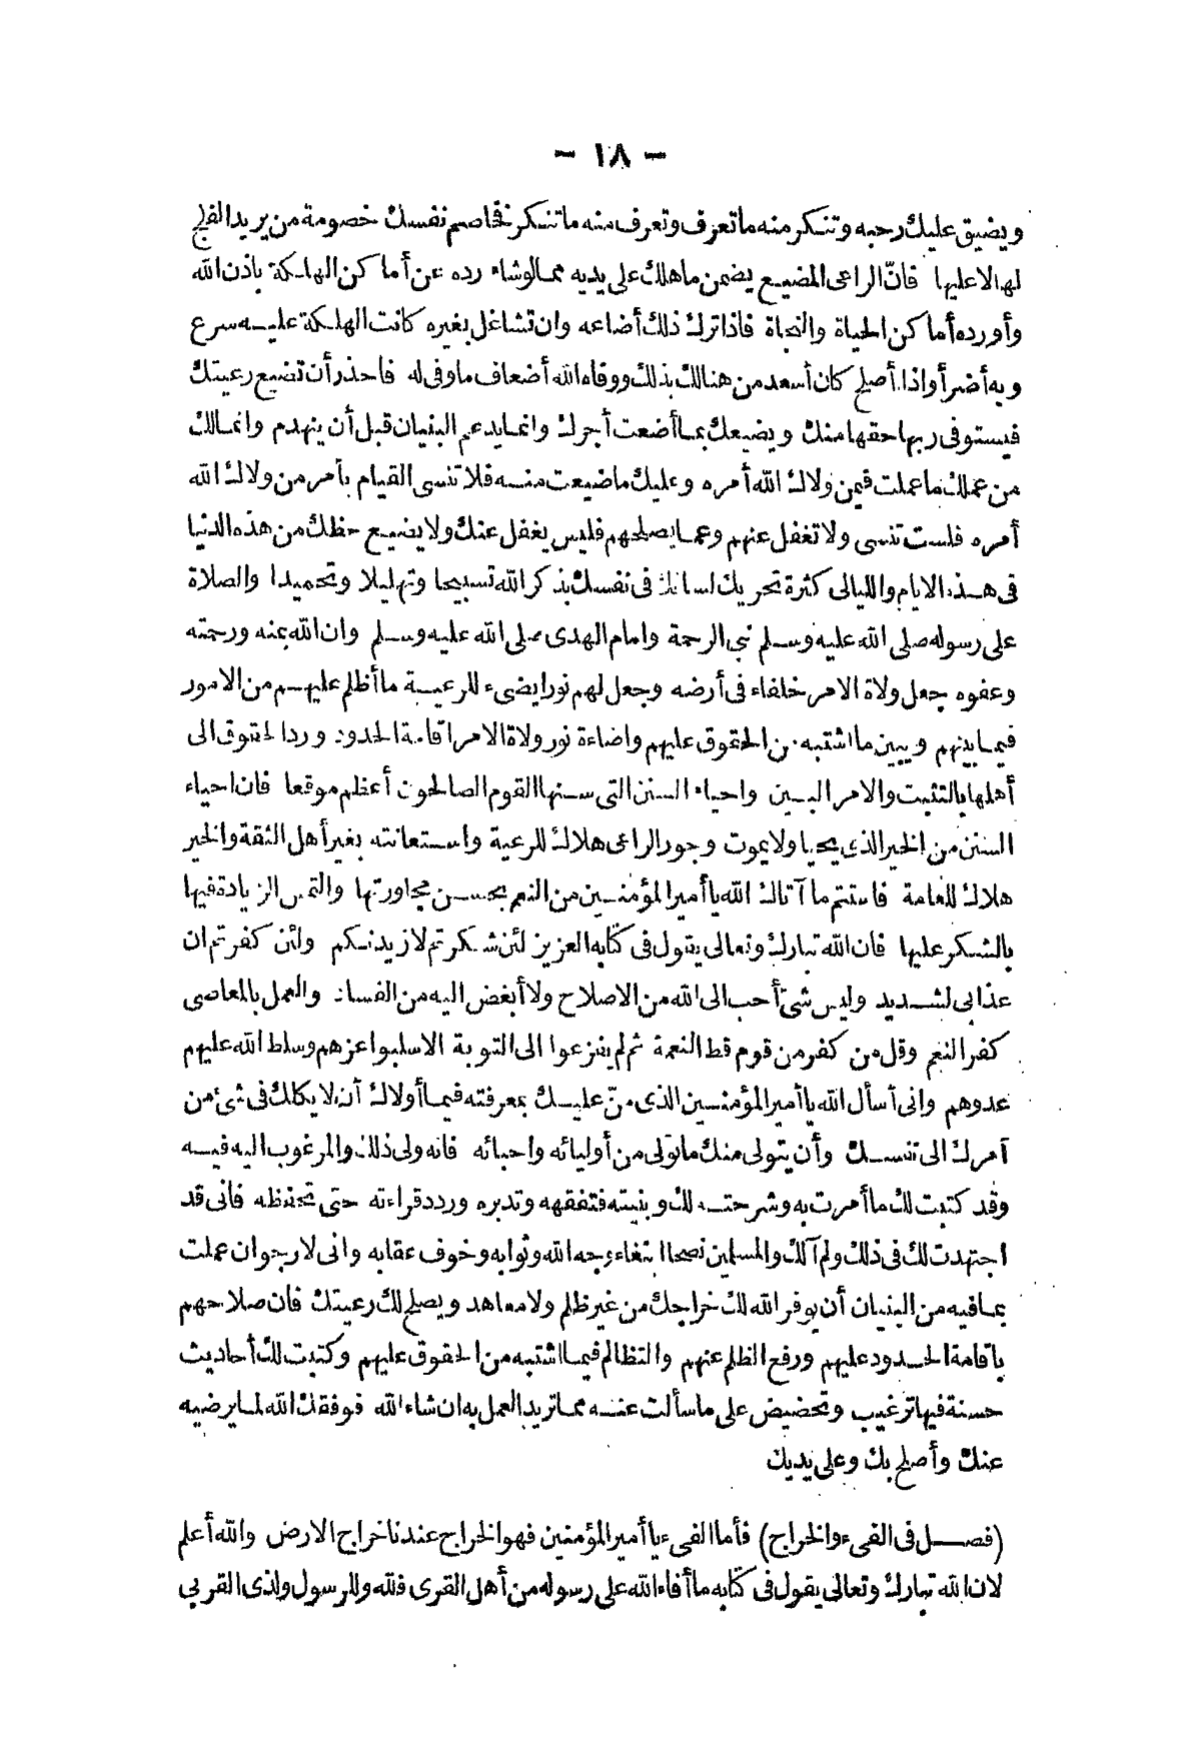 - ١٨ -
ويضيق عليك رحبه وتنكر منه ما تعرف وتعرف منه ما تنكر فخاصم نفسك خصومة من يريد الفلج
لها لا عليها فانّ الراعى المضيع يضمن ما هلك على يديه مما لو شاء رده عن أماكن الهلكة باذن الله
وأورده أماكن الحياة والنجاة فاذا ترك ذلك أضاعه وان تشاغل بغيره كانت الهلكة عليه سرع
وبه أضر أواذا أصلح كان أسعد من هنالك بذلك ووقاه الله أضعاف ما وفى له فاحذر أن تضيع رعيتك
فيستوفى ربها حقها منك ويضيعك بما أضعت أجرك وانما يدعم البنيان قبل أن ينهدم وانما لك
من عملك ما عملت فيمن ولاك الله أمره وعليك ما ضيعت منه فلا تنسى القيام بأمر من ولاك الله
أمره فلست تنسى ولا تغفل عنهم وعما يصلحهم فليس يغفل عنك ولا يضيع حظك من هذه الدنيا
فى هذه الايام والليالى كثرة تحريك لسانك فى نفسك بذكر الله تسبيحا وتهليلا وتحميدا والصلاة
على رسوله صلى الله عليه وسلم نبى الرحمة وامام الهدى صلى الله عليه وسلم وان الله بمنه ورحمته
وعفوه جعل ولاة الامر خلفاء فى أرضه وجعل لهم نورا يضىء للرعية ما أظلم عليهم من الامور
فيما بينهم ويبين ما اشتبه من الحقوق عليهم واضاءة نور ولاة الامر اقامة الحدود ورد الحقوق الى
أهلها بالتثبت والامر البين واحياء السنن التى سنها القوم الصالحون أعظم موقعا فان احياء
السنن من الخير الذى يحيا ولا يموت وجور الراعى هلاك للرعية واستعانته بغير أهل الثقة والخير
هلاك للعامة فاستتم ما آتاك الله يا أمير المؤمنين من النعم بحسن مجاورتها والتمس الزيادة فيها
بالشكر عليها فان الله تبارك وتعالى يقول فى كتابه العزيز لئن شكرتم لازيدنكم ولئن كفرتم ان
عذابى لشديد وليس شئ أحب الى الله من الاصلاح ولا أبغض اليه من الفساد والعمل بالمعاصى
كفر النعم وقل من كفر من قوم قط النعمة ثم لم يفزعوا الى التوبة الا سلبوا عزهم وسلط الله عليهم
عدوهم وانى أسأل الله يا أمير المؤمنين الذى منّ عليك بمعرفته فيما أولاك أن لا يكلك فى شئ من
أمرك الى نفسك وأن يتولى منك ما تولى من أوليائه واحبائه فانه ولى ذلك والمرغوب اليه فيه
وقد كتبت لك ما أمرت به وشرحته لك وبنيته فتفقهه وتدبره وردد قراءته حتى تحفظه فانى قد
اجتهدت لك فى ذلك ولم آلك والمسلمين نصحا ابتغاء وجه الله وثوابه وخوف عقابه وانى لارجو ان عملت
بما فيه من البنيان أن يوفر الله لك خراجك من غير ظلم ولا معاهد ويصلح لك رعيتك فان صلاحهم
باقامة الحدود عليهم ورفع الظلم عنهم والتظالم فيما اشتبه من الحقوق عليهم وكتبت لك أحاديث
حسنة فيها ترغيب وتحضيض على ما سألت عنه مما تريد العمل به ان شاء الله فوفقك الله لما يرضيه
عنك وأصلح بك وعلى يديك
(فصل فى الفىء والخراج) فأما الفىء يا أمير المؤمنين فهو الخراج عندنا خراج الارض والله أعلم
لان الله تبارك وتعالى يقول فى كتابه ما أفاء الله على رسوله من أهل القرى فلله وللرسول ولذى القربى